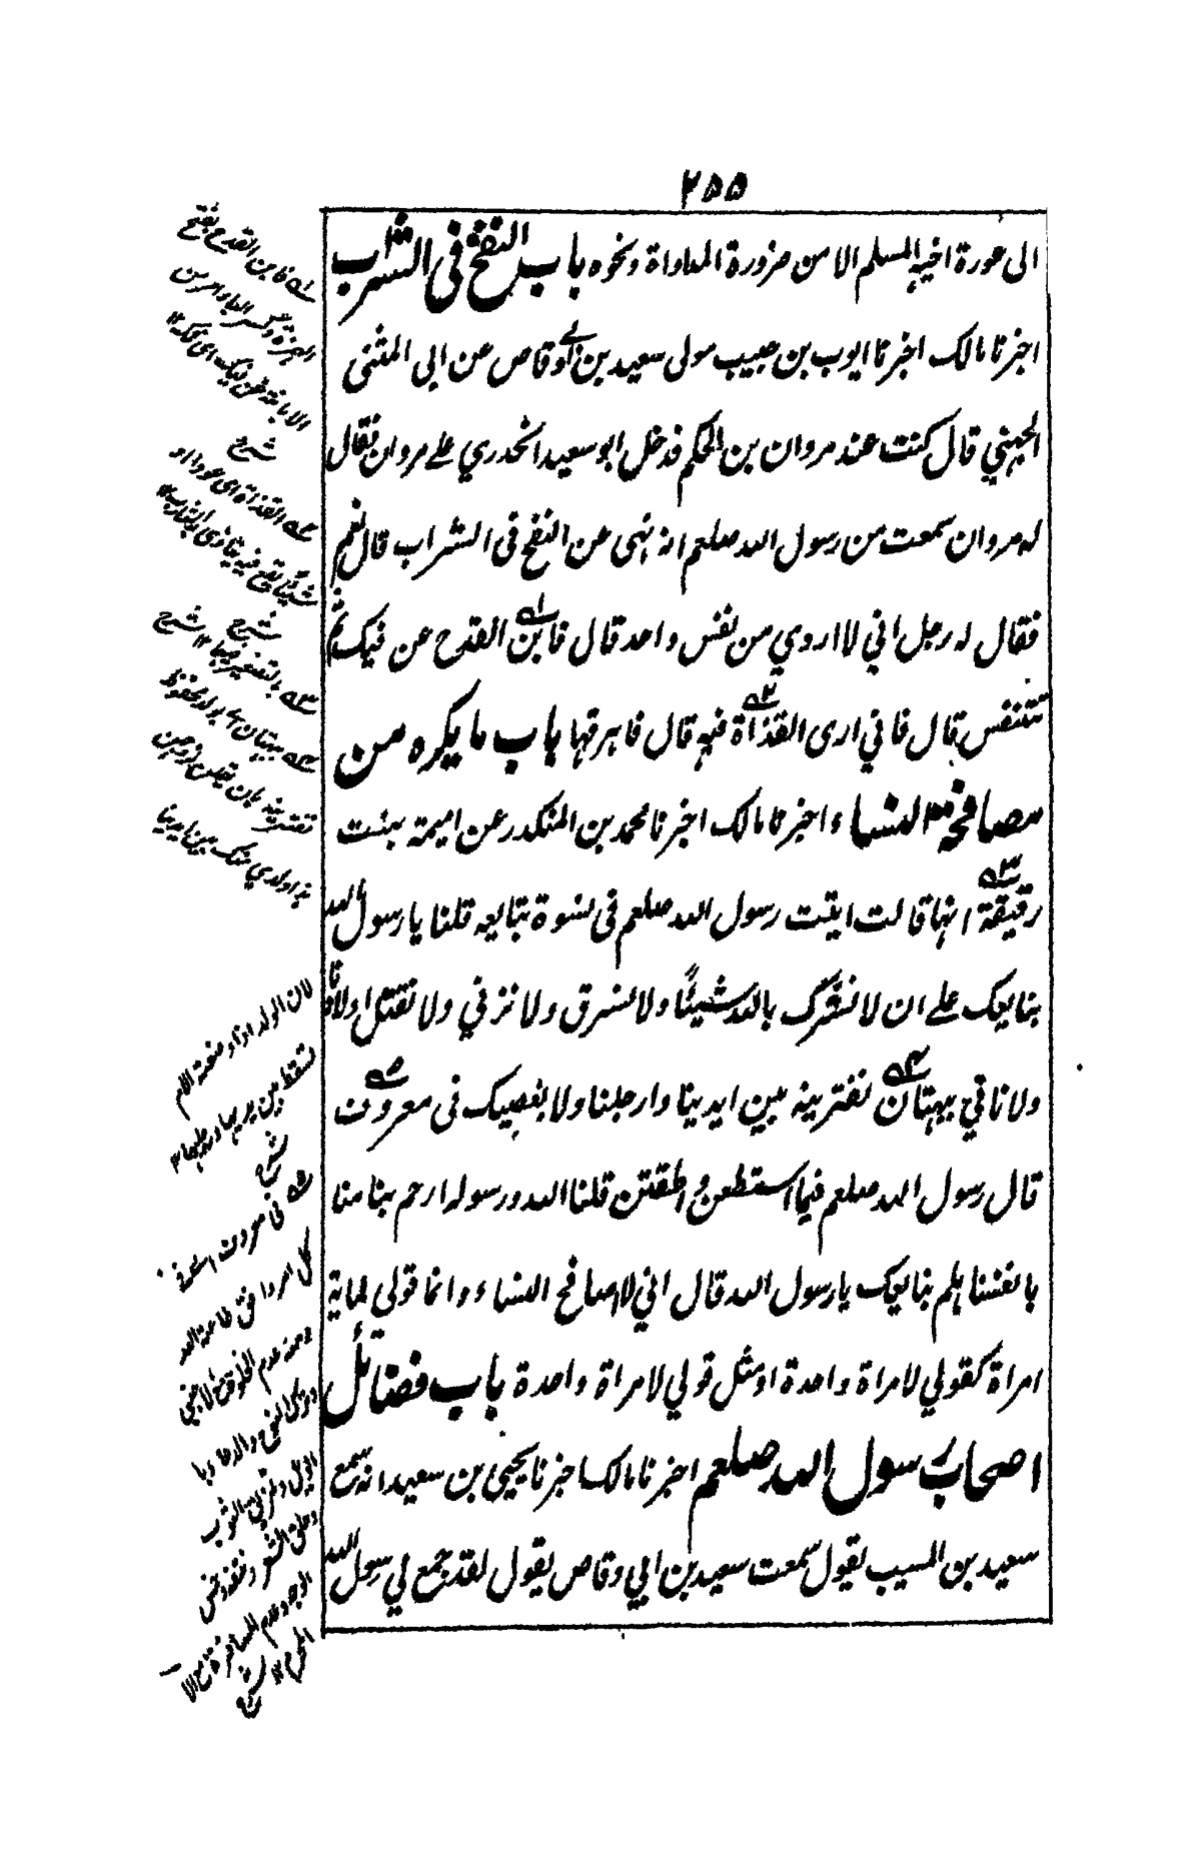 ٢٥٥
الى عورة اخيه المسلم الا من ضرورة المداواة ونحوه باب النفخ فى الشراب
اخبرنا مالك اخبرنا ايوب بن حبيب مولى سعيد بن ابي وقاص عن ابى المثنى
الجهني قال كنت عند مروان بن الحكم فدخل ابو سعيد الخدري على مروان فقال
له مروان سمعت من رسول الله صلعم انه نهى عن النفخ فى الشراب قال نعم
فقال له رجل اني لا اروي من نفس واحد قال فابن القدح عن فيك ثم
تتنفس قال فاني ارى القذاة فيه قال فاهرقها باب ما يكره من
مصافحة النساء اخبرنا مالك اخبرنا محمد بن المنكدر عن اميمة ببنت
رقيقة انها قالت اتيت رسول الله صلعم فى نسوة تبايعه قلنا يا رسول الله
نبايعك على ان لا نشرك بالله شيئا ولا نسرق ولا نزني ولا نقتل اولادنا
ولا ناتي ببهتان نفتريه بين ايدينا وارجلنا ولا نعصيك فى معروف
قال رسول الله صلعم فيما استطعن واطقتن قلنا الله ورسوله ارحم بنا منا
بانفسنا هلم نبايعك يا رسول الله قال اني لا اصافح النساء وانما قولى لماية
امراة كقولي لامراة واحدة او مثل قولي لامراة واحدة باب فضائل
اصحاب رسول الله صلعم اخبرنا مالك اخبرنا يحيى بن سعيد انه سمع
سعيد بن المسيب يقول سمعت سعيد بن ابي وقاص يقول لقد جمع لي رسول الله
فابن القدح بفتح
الهمزة وكسر الباء امر من
الابانة
شرح
القذاة اى عود او
شرح
بالتصغير فيهما شرح
ببهتان اى بولد ملقوط
لان الولد اذا وضعته الام
تسقط بين يديها ورجليها
شرح
فى معروف
كل امر وافق طاعة الله